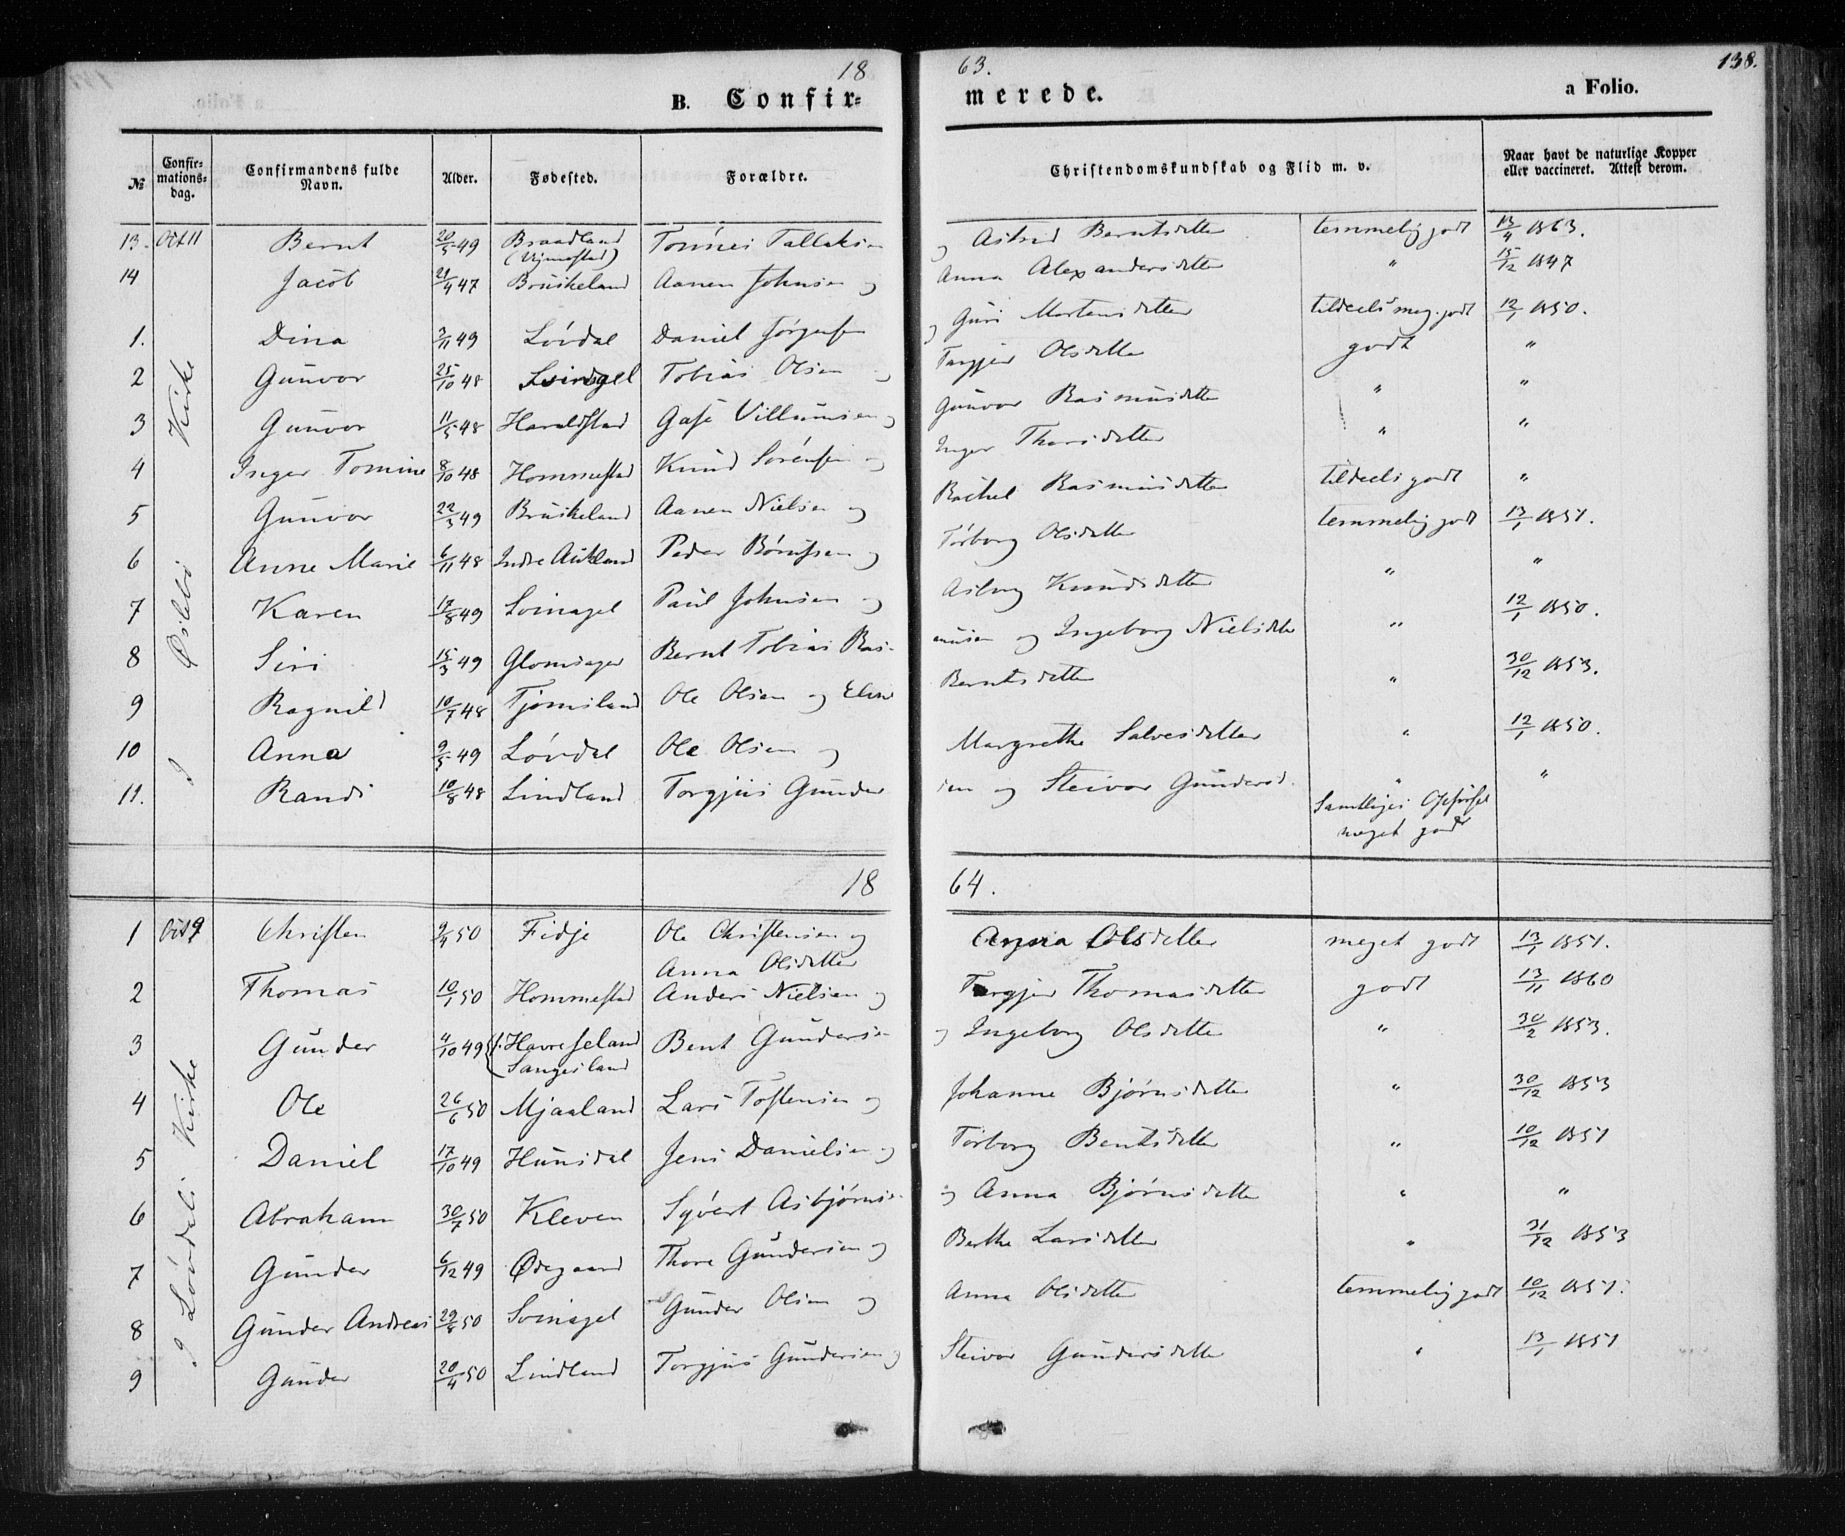 18 63. 138.
B. Confir= merede. a Folio.
№ Confir=mations=dag. Confirmandens fulde Navn. Alder. Fødested. Forældre. Christendomskundskab og Flid m. v. Naar havt de naturlige Kopper eller vaccineret. Attest derom.
13. Oct 11 Bernt 20/5 49 Braadland Tønnes Tallaksen og Astrid Berntsdatter temmelig godt 13/4 1863.
14 Jacob 21/4 47 Bruskeland Aanen Johnsen og Anna Alexandersdatter " 15/12 1847
I Øslebø Kirke
1. Dina 3/11 49 Løvdal Daniel Jørgensen og Guri Mortensdatter tildeels meg. godt 12/1 1850.
2 Gunvor 25/10 48 Svinagel Tobias Olsen og Targjer Olsdatter godt "
3 Gunvor 11/5 48 Haraldstad Gase Villumsen og Gunvor Rasmusdatter " "
4 Inger Tomine 8/10 48 Hommestad Knud Sørensen og Inger Thorsdatter " "
5 Gunvor 22/3 49 Bruskeland Aanen Nielsen og Rachel Rasmusdatter tildeels godt "
6 Anne Marie 6/11 48 Indre Aukland Peder Børufsen og Tørborg Olsdatter temmelig godt 13/1 1851.
7 Karen 17/8 49 Svinagel Paul Johnsen og Asborg Knudsdatter " "
8 Siri 15/3 49 Glomsager Bernt Tobias Ras- musen og Ingeborg Nielsdatter " 12/1 1850.
9 Ragnild 10/7 48 Tjomsland Ole Olsen og Elen Berntsdatter " 30/12 1853.
10 Anna 9/5 49 Løvdal Ole Olsen og Margrethe Salvesdatter " 12/1 1850.
11. Randi 10/8 48 Lindland Torgjus Gunder sen og Steivor Gundersd. " "
Samtliges Opførsel
meget godt
18 64.
I Løvdals Kirke
1 Oct 9 Christen 9/4 50 Fidje Ole Christensen og Anna Olsdatter meget godt 13/1 1851.
Anna Olsdatter
2 Thomas 10/1 50 Hommestad Anders Nielsen og Torgjer Thomasdatter godt 13/11 1860
3 Gunder 4/10 49 Havreseland Bent Gundersen og Ingeborg Olsdatter " 30/2 1853.
Sangesland
4 Ole 26/6 50 Mjaaland Lars Tostensen og Johanne Bjørnsdatter " 30/12 1853
5 Daniel 17/10 49 Hunsdal Jens Danielsen og Tørborg Bentsdatter " 10/12 1851
6 Abraham 30/7 50 Kleven Syvert Asbjørns. og Anna Bjørnsdatter " "
7 Gunder 6/12 49 Ødegaard Thore Gundersen og Berthe Larsdatter " 31/12 1853
8 Gunder Andreas 29/8 50 Svinagel Gunder Olsen og Anna Olsdatter temmelig godt 10/12 1851.
9 Gunder 20/4 50 Lindland Torgjus Gundersen og Steivor Gundersdatter " 13/1 1851